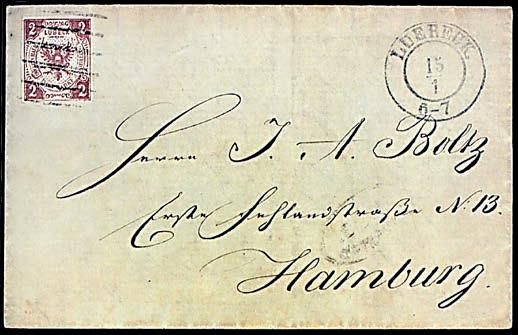 2 2
LUBECK
2 2
LUEBECK.
15
1
6-7
Herrn J. A. Boltz
Erste Fehlandstraße N: 13.
Hamburg.